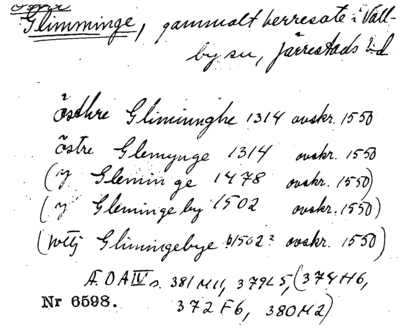 Östra
Glimminge, gammalt herresäte i Vall-
by sn, Järrestads hd
östhre Glimiunghe 1314 avskr. 1550
östre Glemynge 1314 avskr. 1550
(y Gleminge 1478 avskr. 1550)
(y Gleminge by 1502 avskr. 1550)
(wttj Glimingebye 1502? avskr. 1550)
Æ DA IV s. 381 M11, 379 L5, (374 H6,
Nr 6598. 372 F6, 380 M2)